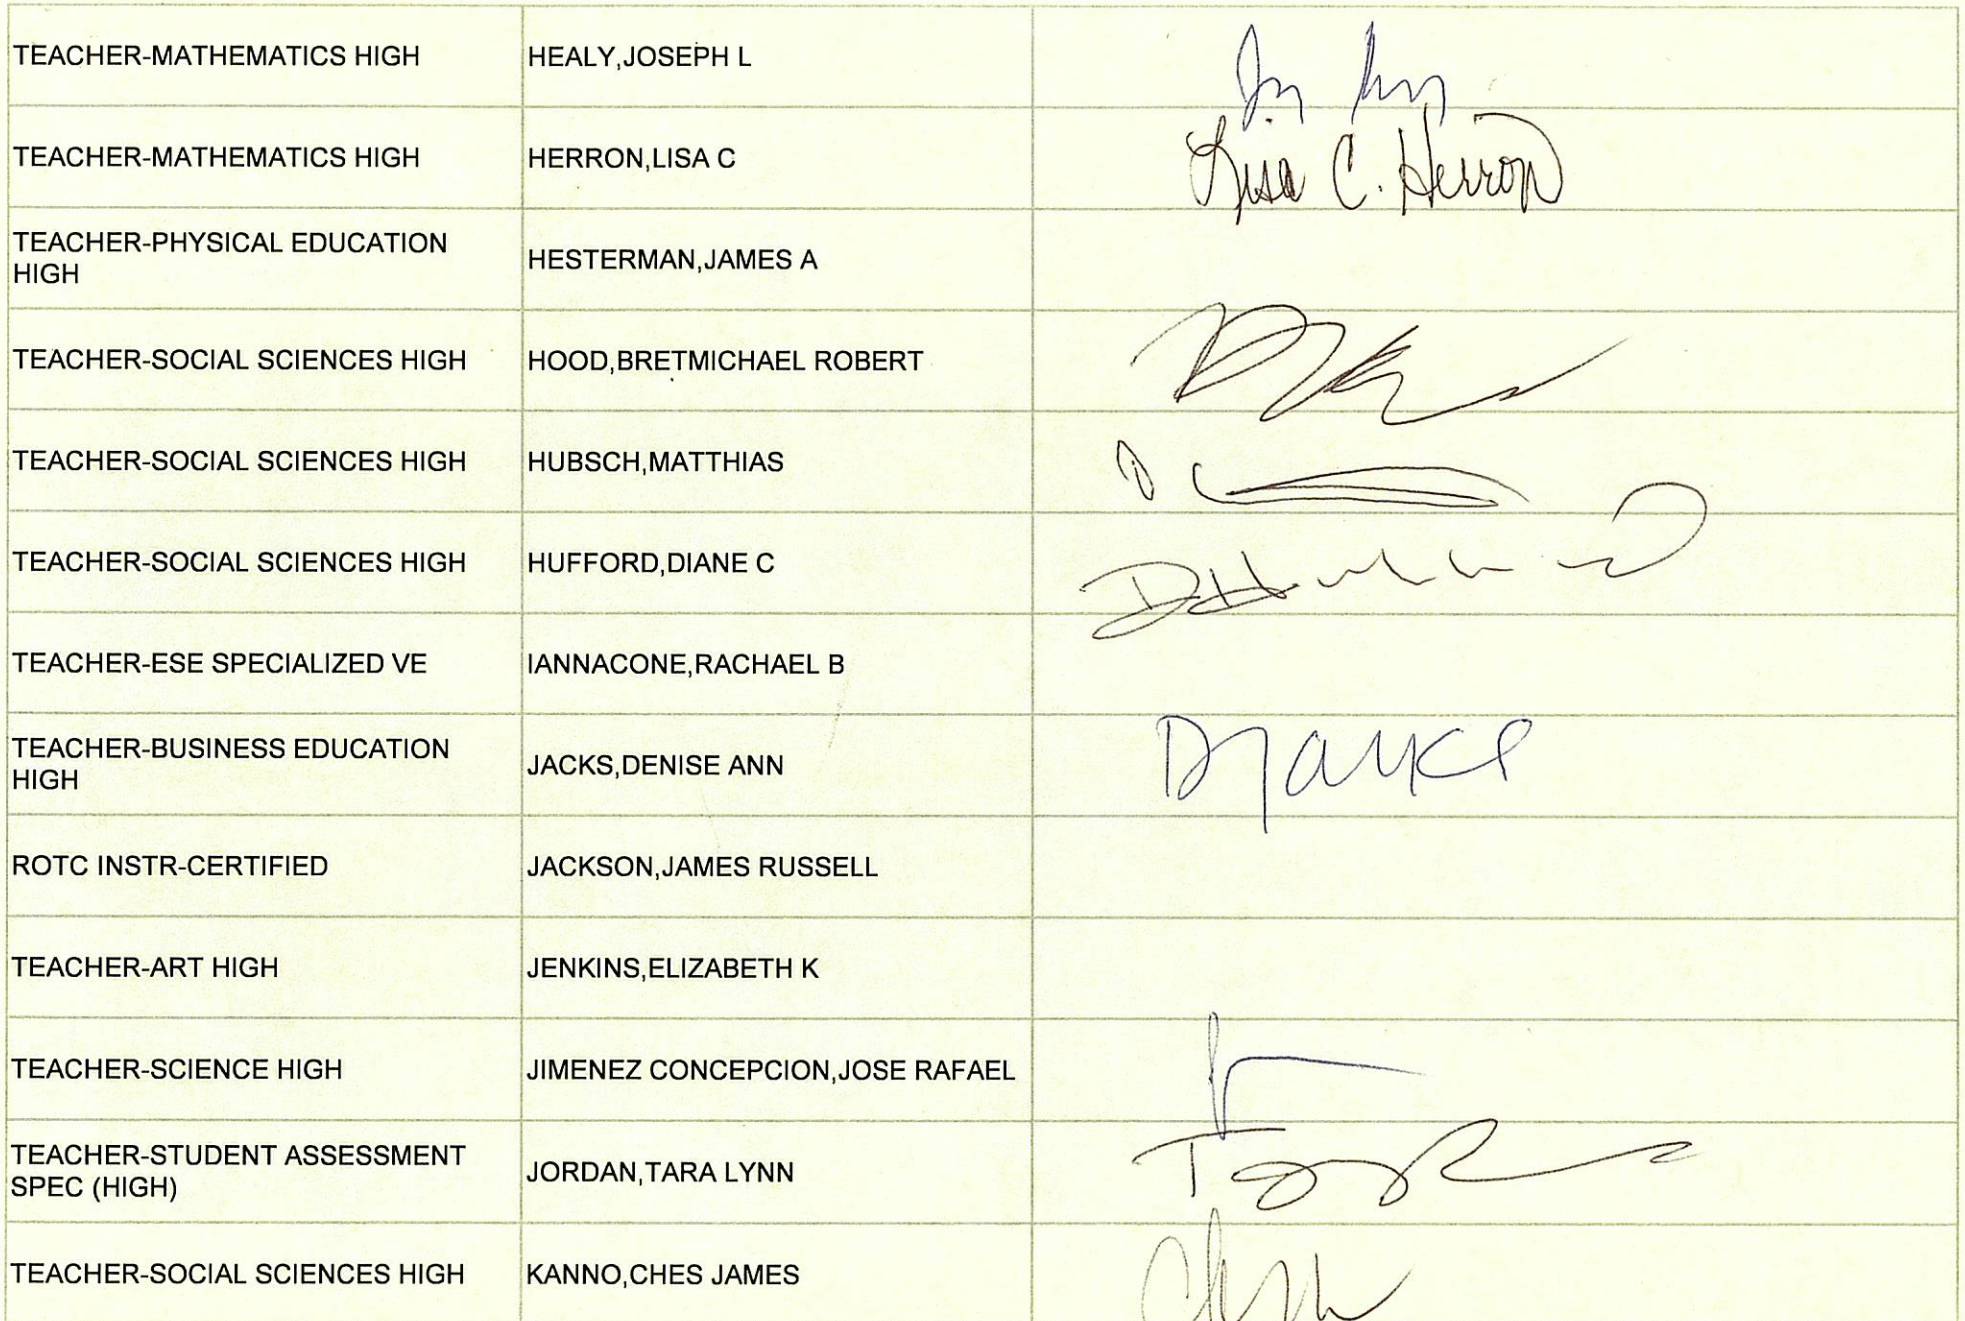 TEACHER-MATHEMATICS HIGH HEALY,JOSEPH L
TEACHER-MATHEMATICS HIGH HERRON,LISA C Lisa C. Herron
TEACHER-PHYSICAL EDUCATION
HIGH HESTERMAN,JAMES A
TEACHER-SOCIAL SCIENCES HIGH HOOD,BRETMICHAEL ROBERT
TEACHER-SOCIAL SCIENCES HIGH HUBSCH,MATTHIAS
TEACHER-SOCIAL SCIENCES HIGH HUFFORD,DIANE C
TEACHER-ESE SPECIALIZED VE IANNACONE,RACHAEL B
TEACHER-BUSINESS EDUCATION
HIGH JACKS,DENISE ANN
ROTC INSTR-CERTIFIED JACKSON,JAMES RUSSELL
TEACHER-ART HIGH JENKINS,ELIZABETH K
TEACHER-SCIENCE HIGH JIMENEZ CONCEPCION,JOSE RAFAEL
TEACHER-STUDENT ASSESSMENT
SPEC (HIGH) JORDAN,TARA LYNN
TEACHER-SOCIAL SCIENCES HIGH KANNO,CHES JAMES